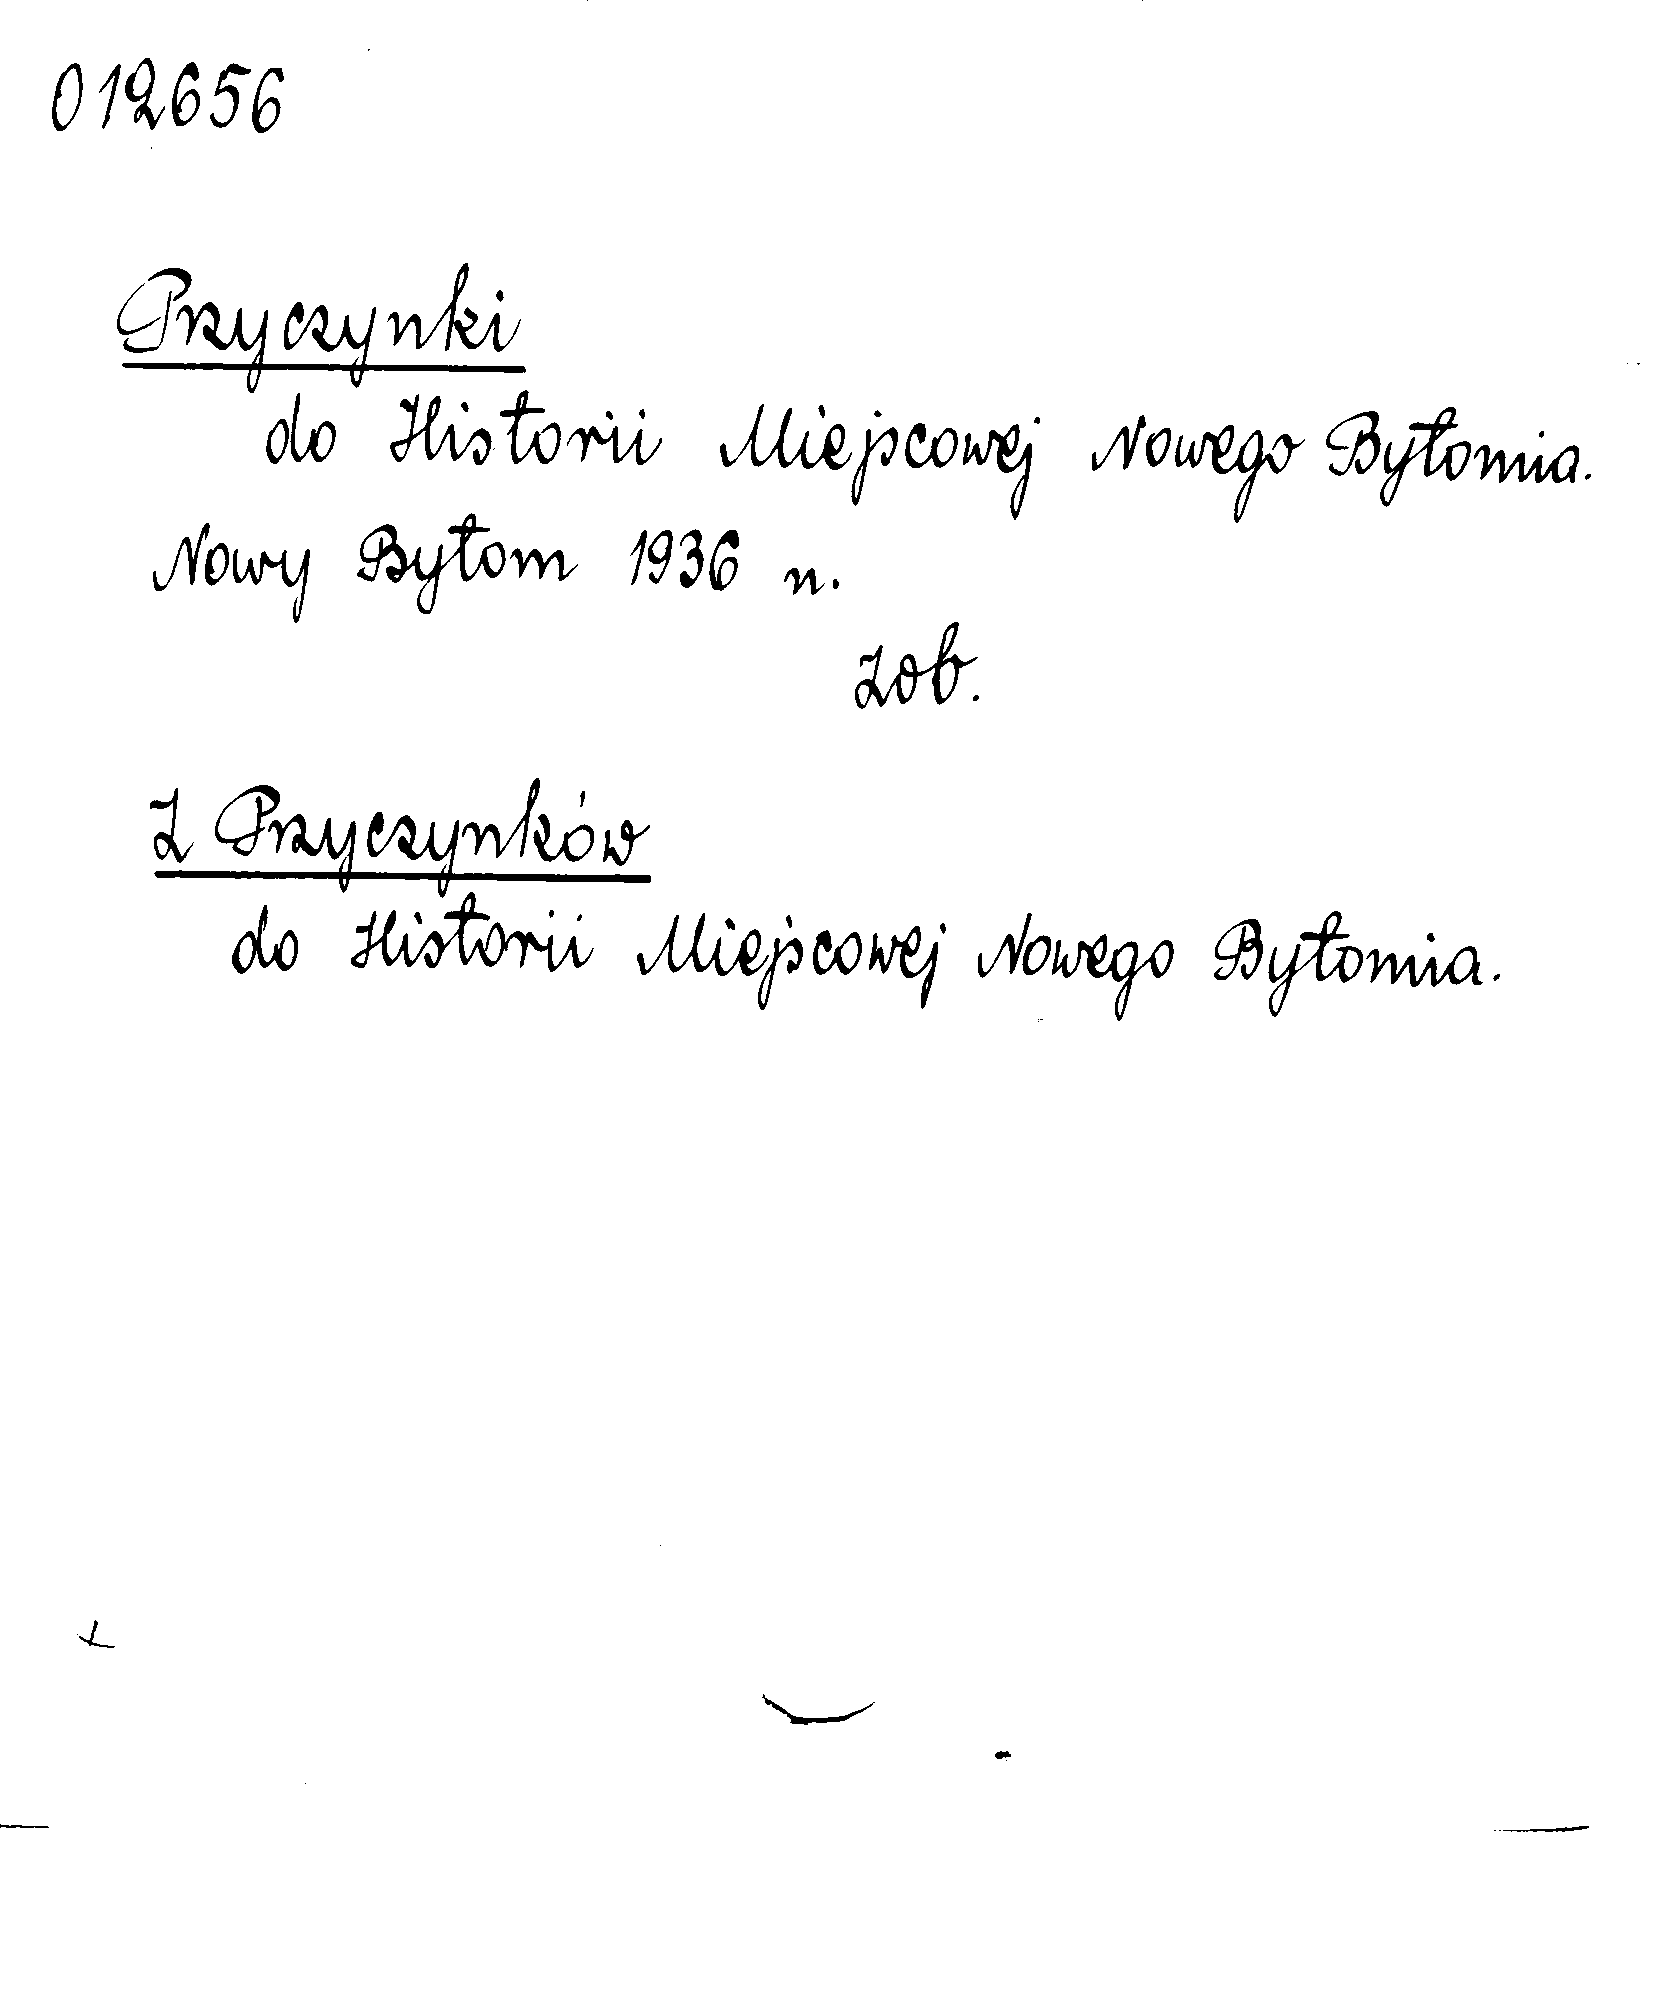 012656
Przyczynki
do Historii Miejscowej Nowego Bytomia.
Nowy Bytom 1936 n.
zob.
Z Przyczynków
do Historii Miejscowej Nowego Bytomia.